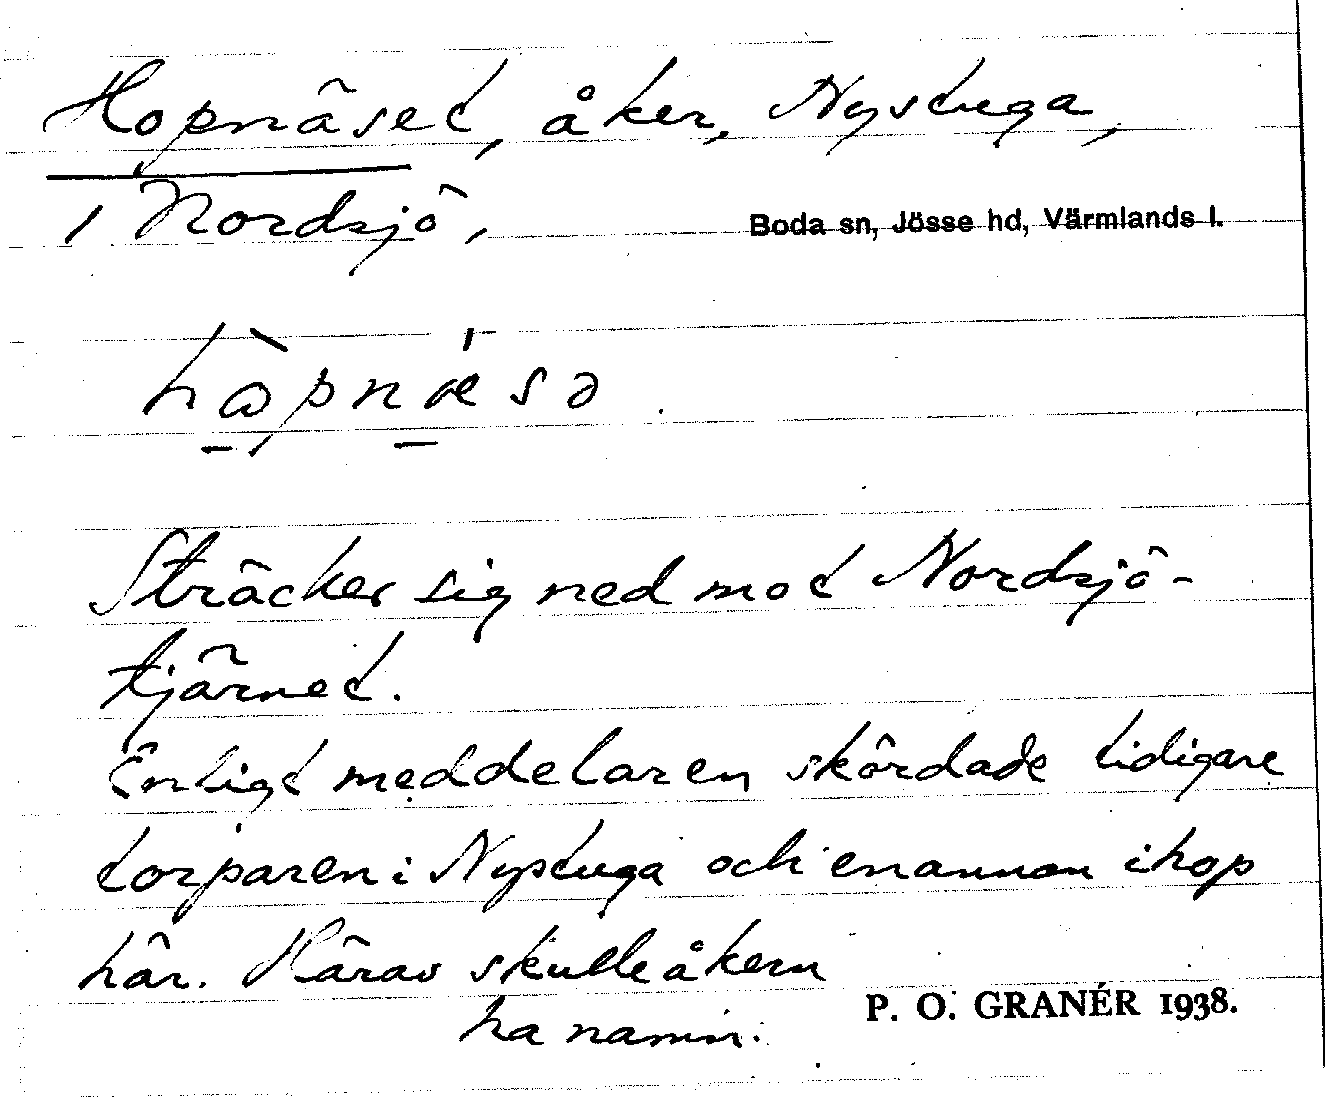 Hopnäset, åker, Nystuga,
i Nordsjö,
Boda sn, Jösse hd, Värmlands l.
Sträcker sig ned mot Nordsjö-
tjärnet.
Enligt meddelaren skördade tidigare
torparen i Nystuga och en annan ihop
här. Härav skulle åkern
ha namn.
P. O. GRANÉR 1938.